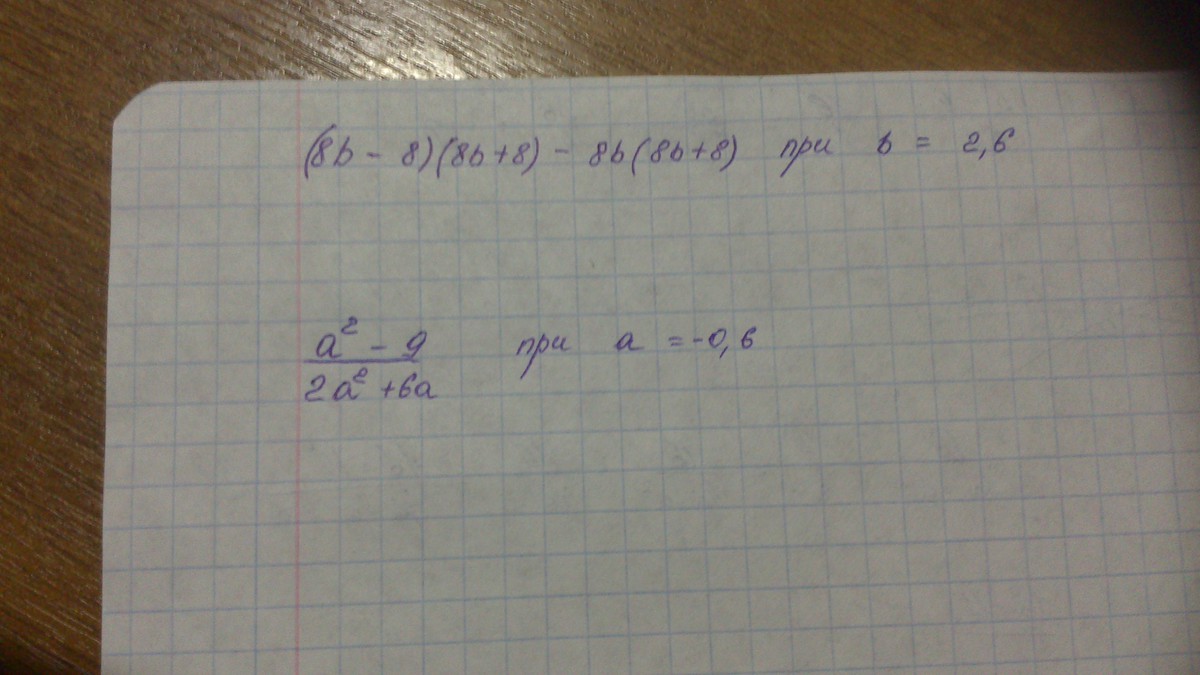 (8b - 8)(8b+8) - 8b(8b+8) при b = 2,6
a² - 9 / 2a² + 6a при a = -0,6